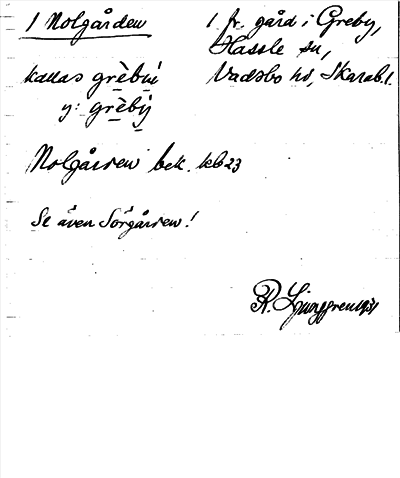 1 Nolgården
1 fr. gård i Greby,
Hassle sn,
Vadsbo hd, Skarab. l.
kallas grèbuì
y: grèbỳ
Nolgården bek. kb 23
Se även Sörgården!
R. Ljunggren 1931